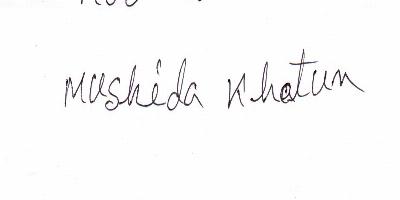 Mushida Khatun